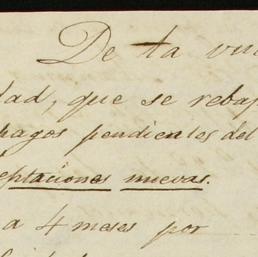 De la
dad, que se rebaj
pagos pendientes del
eptaciones nuevas.
a 4 meses por